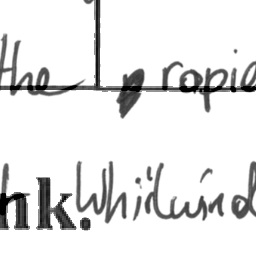 the , ropie
hk. Whirlwind